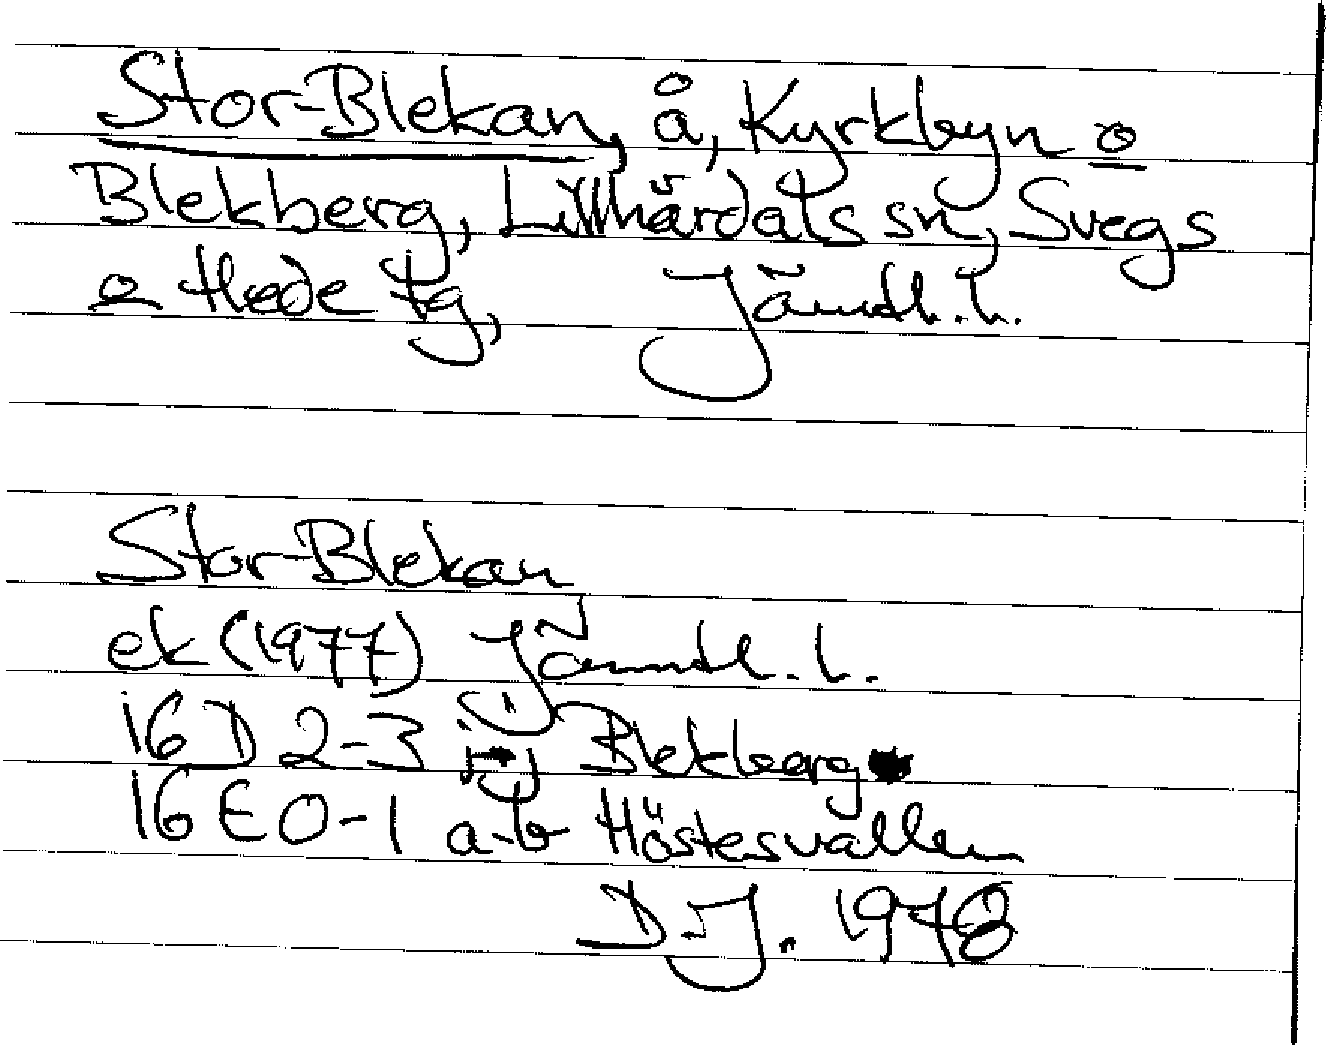 Stor-Blekan, å, Kyrkbyn o
Blekberg, Lillhärdals sn, Svegs
o Hede tg, Jämtl. l.
Stor-Blekan
ek (1977) Jämtl. l.
16 D 2-3 i-j Blekberg
16 E 0-1 a-b Höstesvallen
D.J. 1978